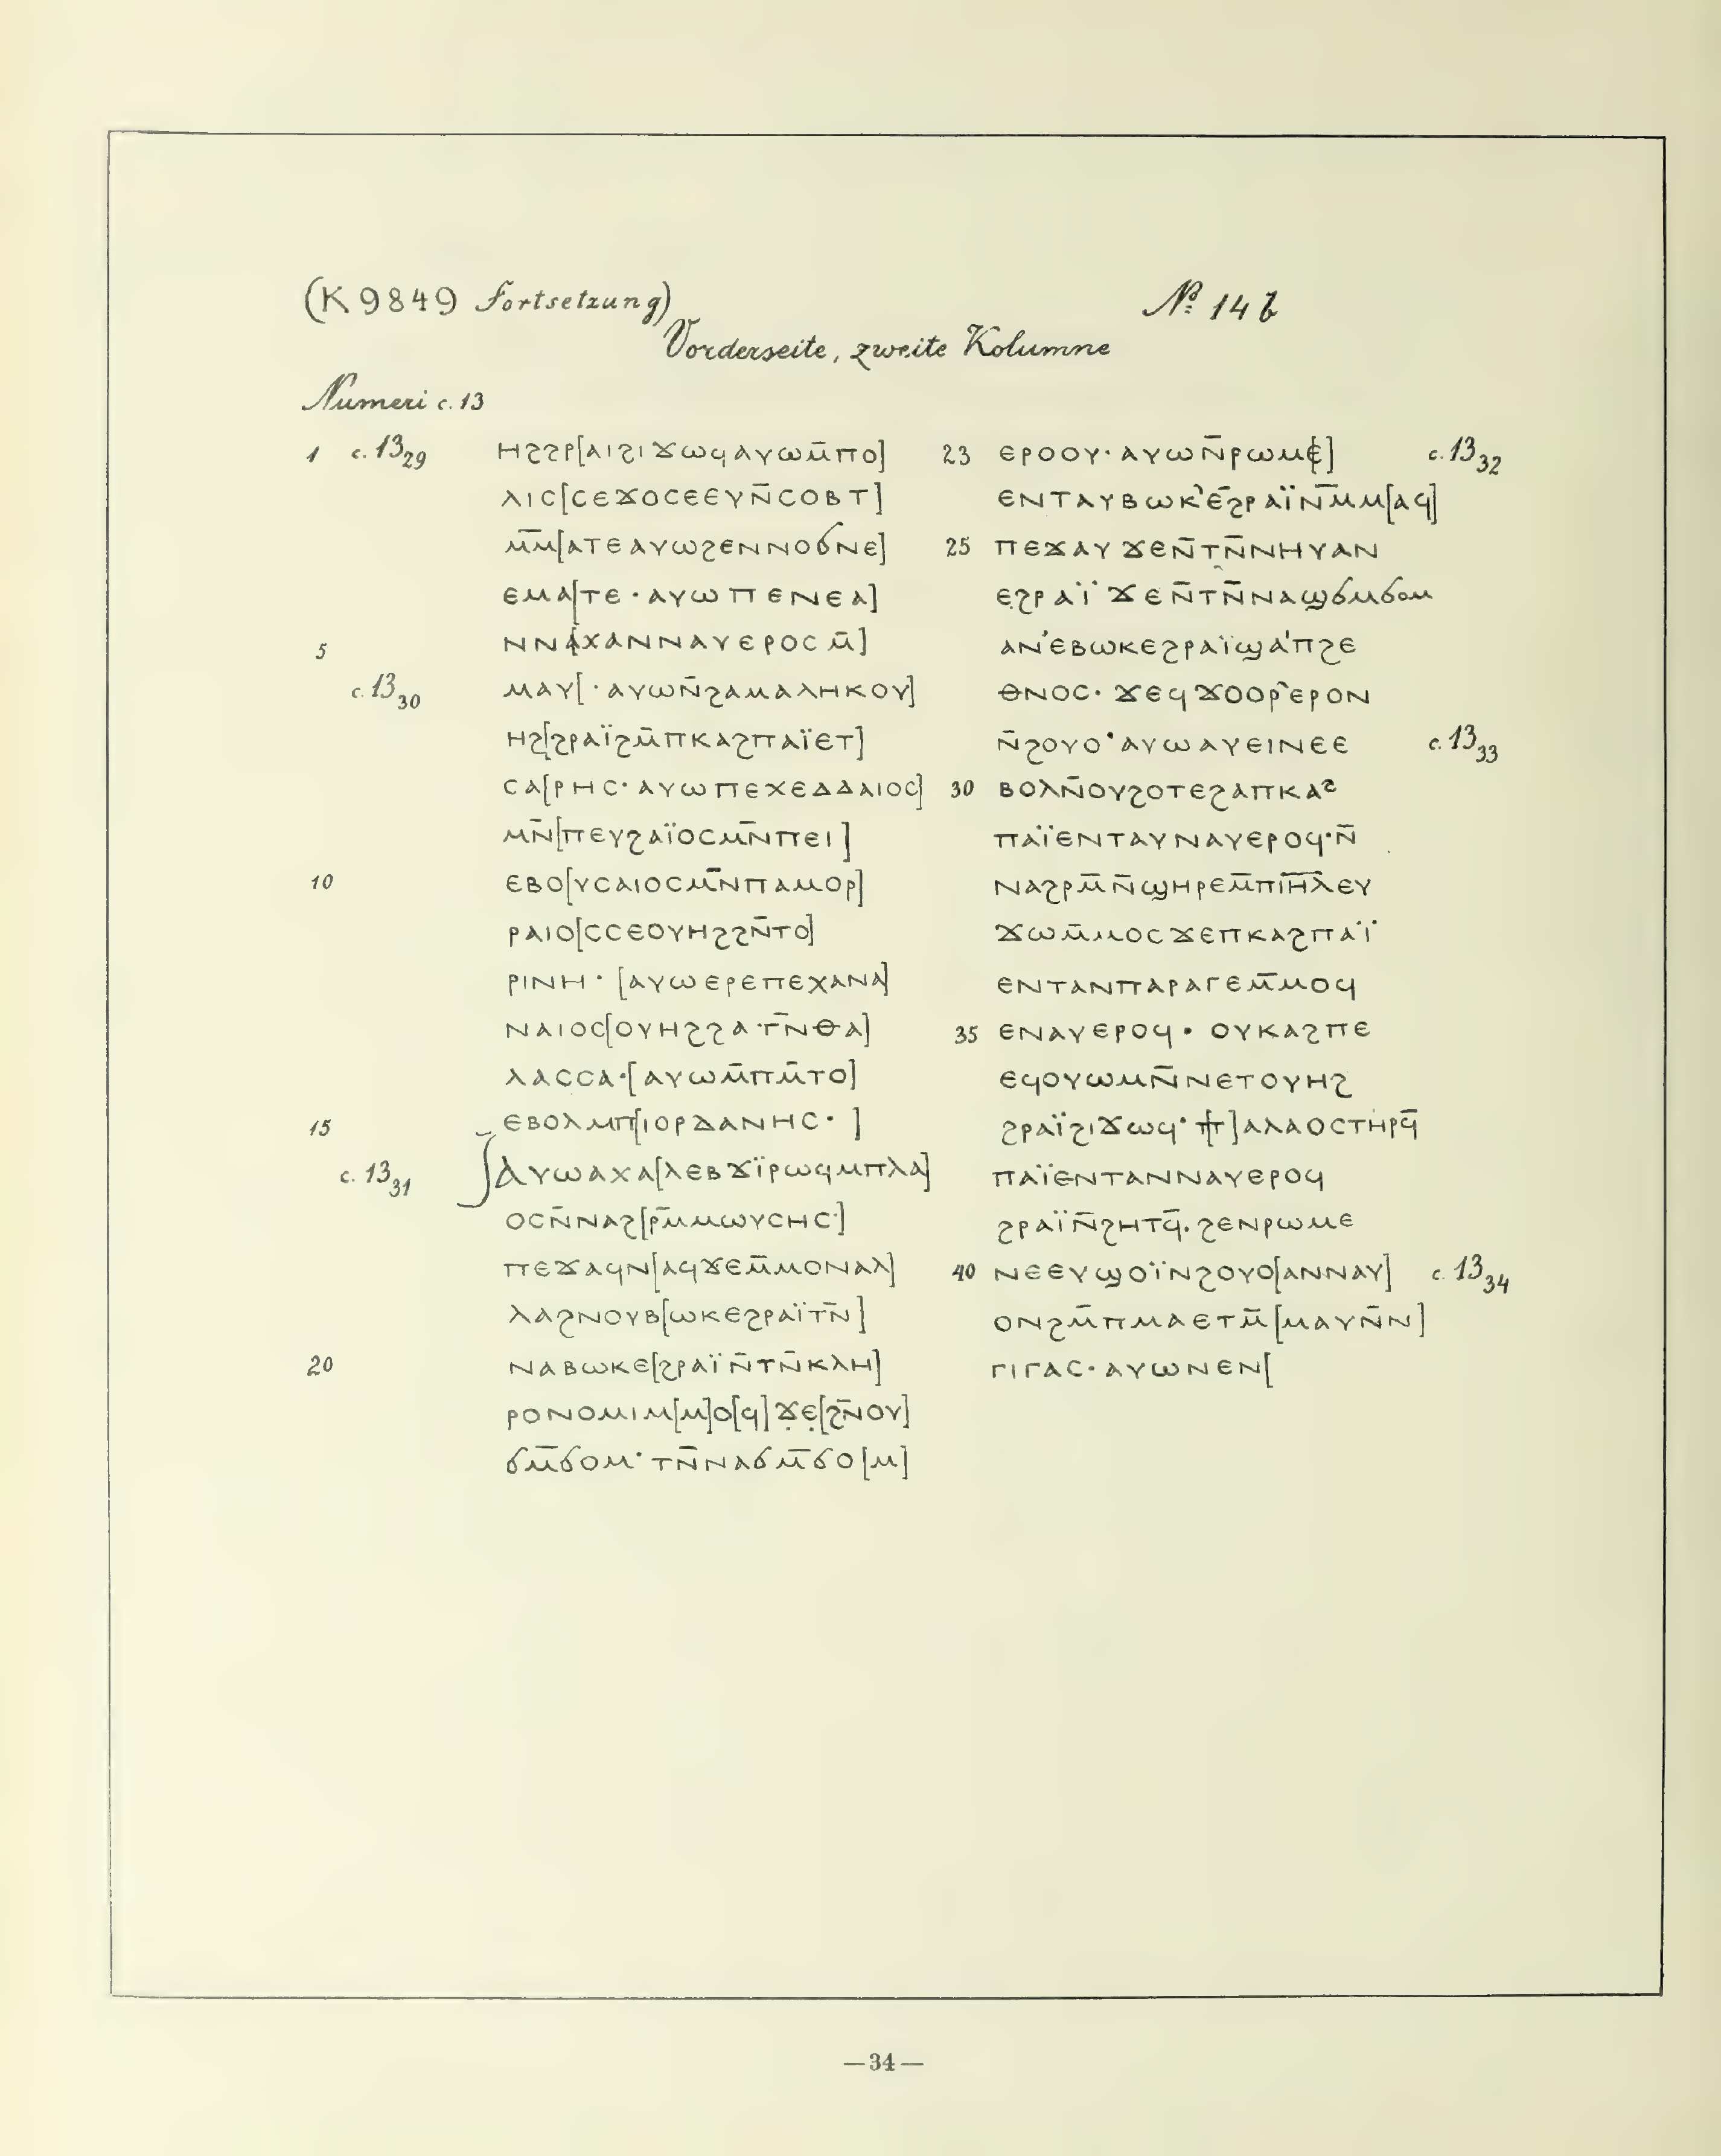 (K 9849 Fortsetzung)
№ 14 b
Vorderseite, zweite Kolumne
Numeri c. 13
1 c. 13 29 ⲏϩϩⲣ[ⲁⲓϩⲓϫⲱϥⲁⲩⲱⲙ̄ⲡⲟ]
ⲗⲓⲥ[ⲥⲉϫⲟⲥⲉⲉⲩⲛ̄ⲥⲟⲃⲧ]
ⲙ̄ⲙ̄[ⲁⲧⲉⲁⲩⲱϩⲉⲛⲛⲟϭⲛⲉ]
ⲉⲙⲁ[ⲧⲉ · ⲁⲩⲱⲡⲉⲛⲉⲁ]
5 ⲛⲛ[ⲁⲭⲁⲛⲛⲁⲩⲉⲣⲟⲥⲙ̄]
c. 13 30 ⲙⲁⲩ[· ⲁⲩⲱⲛ̄ϩⲁⲙⲁⲗⲏⲕⲟⲩ]
ⲏϩ[ϩⲣⲁⲓ̈ϩⲙ̄ⲡⲕⲁϩⲡⲁⲓ̈ⲉⲧ]
ⲥⲁ[ⲣⲏⲥ· ⲁⲩⲱⲡⲉⲭⲉⲇⲇⲁⲓⲟⲥ]
ⲙⲛ̄[ⲡⲉⲩϩⲁⲓ̈ⲟⲥⲙ̄ⲛⲡⲉⲓ]
10 ⲉⲃⲟ[ⲩⲥⲁⲓⲟⲥⲙ̄ⲛⲡⲁⲙⲟⲣ]
ⲣⲁⲓⲟ[ⲥⲥⲉⲟⲩⲏϩϩⲛ̄ⲧⲟ]
ⲣⲓⲛⲏ · [ⲁⲩⲱⲉⲣⲉⲡⲉⲭⲁⲛⲁ]
ⲛⲁⲓⲟⲥ[ⲟⲩⲏϩϩⲁ·ⲧ̄ⲛⲑⲁ]
ⲗⲁⲥⲥⲁ·[ⲁⲩⲱⲙ̄ⲡⲙ̄ⲧⲟ]
15 ⲉⲃⲟⲗⲙⲡ[ⲓⲟⲣⲇⲁⲛⲏⲥ· ]
c. 13 31 ⲁⲩⲱⲁⲭⲁ[ⲗⲉⲃϫⲓ̈ⲣⲱϥⲙⲡⲗⲁ]
ⲟⲥⲛ̄ⲛⲁϩ[ⲣ̄ⲙⲙⲱⲩⲥⲏⲥ·]
ⲡⲉϫⲁϥⲛ[ⲁϥϫⲉⲙ̄ⲙⲟⲛⲁⲗ]
ⲗⲁϩⲛⲟⲩⲃ[ⲱⲕⲉϩⲣⲁⲓ̈ⲧⲛ̄]
20 ⲛⲁⲃⲱⲕⲉ[ϩⲣⲁⲓ̈ⲛ̄ⲧⲛ̄ⲕⲗⲏ]
ⲣⲟⲛⲟⲙⲓⲙ[ⲙ]ⲟ[ϥ]ϫ̣ⲉ̣[ϩⲛ̄ⲟⲩ]
ϭⲙ̄ϭⲟⲙ· ⲧⲛ̄ⲛⲁϭⲙ̄ϭⲟ[ⲙ]
23 ⲉⲣⲟⲟⲩ· ⲁⲩⲱⲛ̄ⲣⲱⲙ[ⲉ] c. 13 32
ⲉⲛⲧⲁⲩⲃⲱⲕ̓ⲉ̄ϩⲣⲁⲓ̈ⲛ̄ⲙ̄ⲙ[ⲁϥ]
25 ⲡⲉϫⲁⲩϫⲉⲛ̄ⲧⲛ̄ⲛⲏⲩⲁⲛ
ⲉϩⲣⲁⲓ̈ϫⲉⲛ̄ⲧⲛ̄ⲛⲁϣϭⲙϭⲟⲙ
ⲁⲛ̓ⲉⲃⲱⲕⲉϩⲣⲁⲓ̈ϣⲁ̓ⲡϩⲉ
ⲑⲛⲟⲥ· ϫⲉϥϫⲟⲟⲣ̓ⲉⲣⲟⲛ
ⲛ̄ϩⲟⲩⲟ· ⲁⲩⲱⲁⲩⲉⲓⲛⲉⲉ c. 13 33
30 ⲃⲟⲗⲛ̄ⲟⲩϩⲟⲧⲉϩⲁⲡⲕⲁϩ
ⲡⲁⲓ̈ⲉⲛⲧⲁⲩⲛⲁⲩⲉⲣⲟϥ·ⲛ̄
ⲛⲁϩⲣⲙ̄ⲛ̄ϣⲏⲣⲉⲙ̄ⲡⲓ̄ⲏ̄ⲗ̄ⲉⲩ
ϫⲱⲙ̄ⲙⲟⲥϫⲉⲡⲕⲁϩⲡⲁⲓ̈
ⲉⲛⲧⲁⲛⲡⲁⲣⲁⲅⲉⲙ̄ⲙⲟϥ
35 ⲉⲛⲁⲩⲉⲣⲟϥ · ⲟⲩⲕⲁϩⲡⲉ
ⲉϥⲟⲩⲱⲙⲛ̄ⲛⲉⲧⲟⲩⲏϩ
ϩⲣⲁⲓ̈ϩⲓϫⲱϥ· [ⲡ]ⲁⲗⲁⲟⲥⲧⲏⲣϥ̄
ⲡⲁⲓ̈ⲉⲛⲧⲁⲛⲛⲁⲩⲉⲣⲟϥ
ϩⲣⲁⲓ̈ⲛ̄ϩⲏⲧϥ̄. ϩⲉⲛⲣⲱⲙⲉ
40 ⲛⲉⲉⲩϣⲟⲓ̈ⲛϩⲟⲩⲟ[ⲁⲛⲛⲁⲩ] c. 13 34
ⲟⲛϩⲙ̄ⲡⲙⲁⲉⲧⲙ̄[ⲙⲁⲩⲛ̄ⲛ]
ⲅⲓⲅⲁⲥ· ⲁⲩⲱⲛⲉⲛ[
—34—